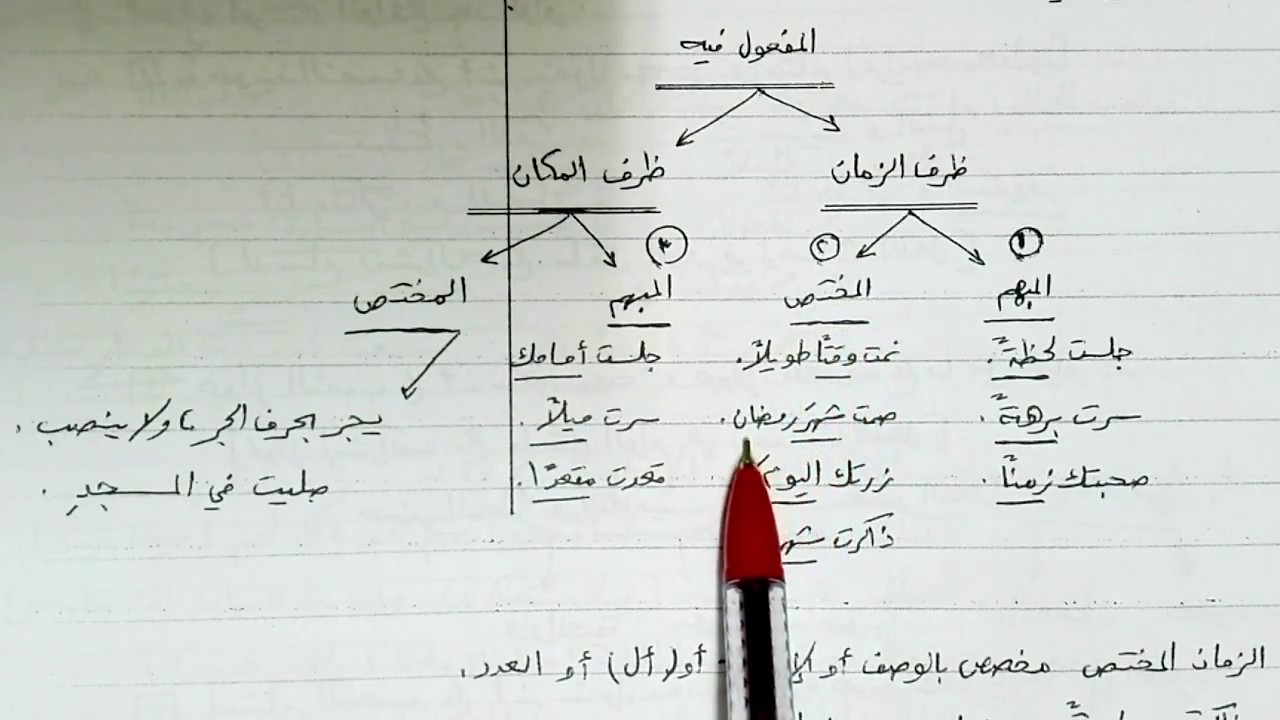 المفعول فيه
ظرف الزمان
ظرف المكان
١
٢
٣
المبهم
المختص
المبهم
المختص
جلست لحظةً.
نمت وقتًا طويلاً.
جلست أمامك
سرت برهةً.
صمت شهرَ رمضان.
سرت ميلاً.
يجر بحرف الجر، ولا ينصب.
صحبتك زمنًا.
زرتك اليوم
قعدت مقعدًا.
صليت في المسجدِ.
ذاكرت
الزمان المختص مخصص بالوصف أو أو (أل) أو العدد.